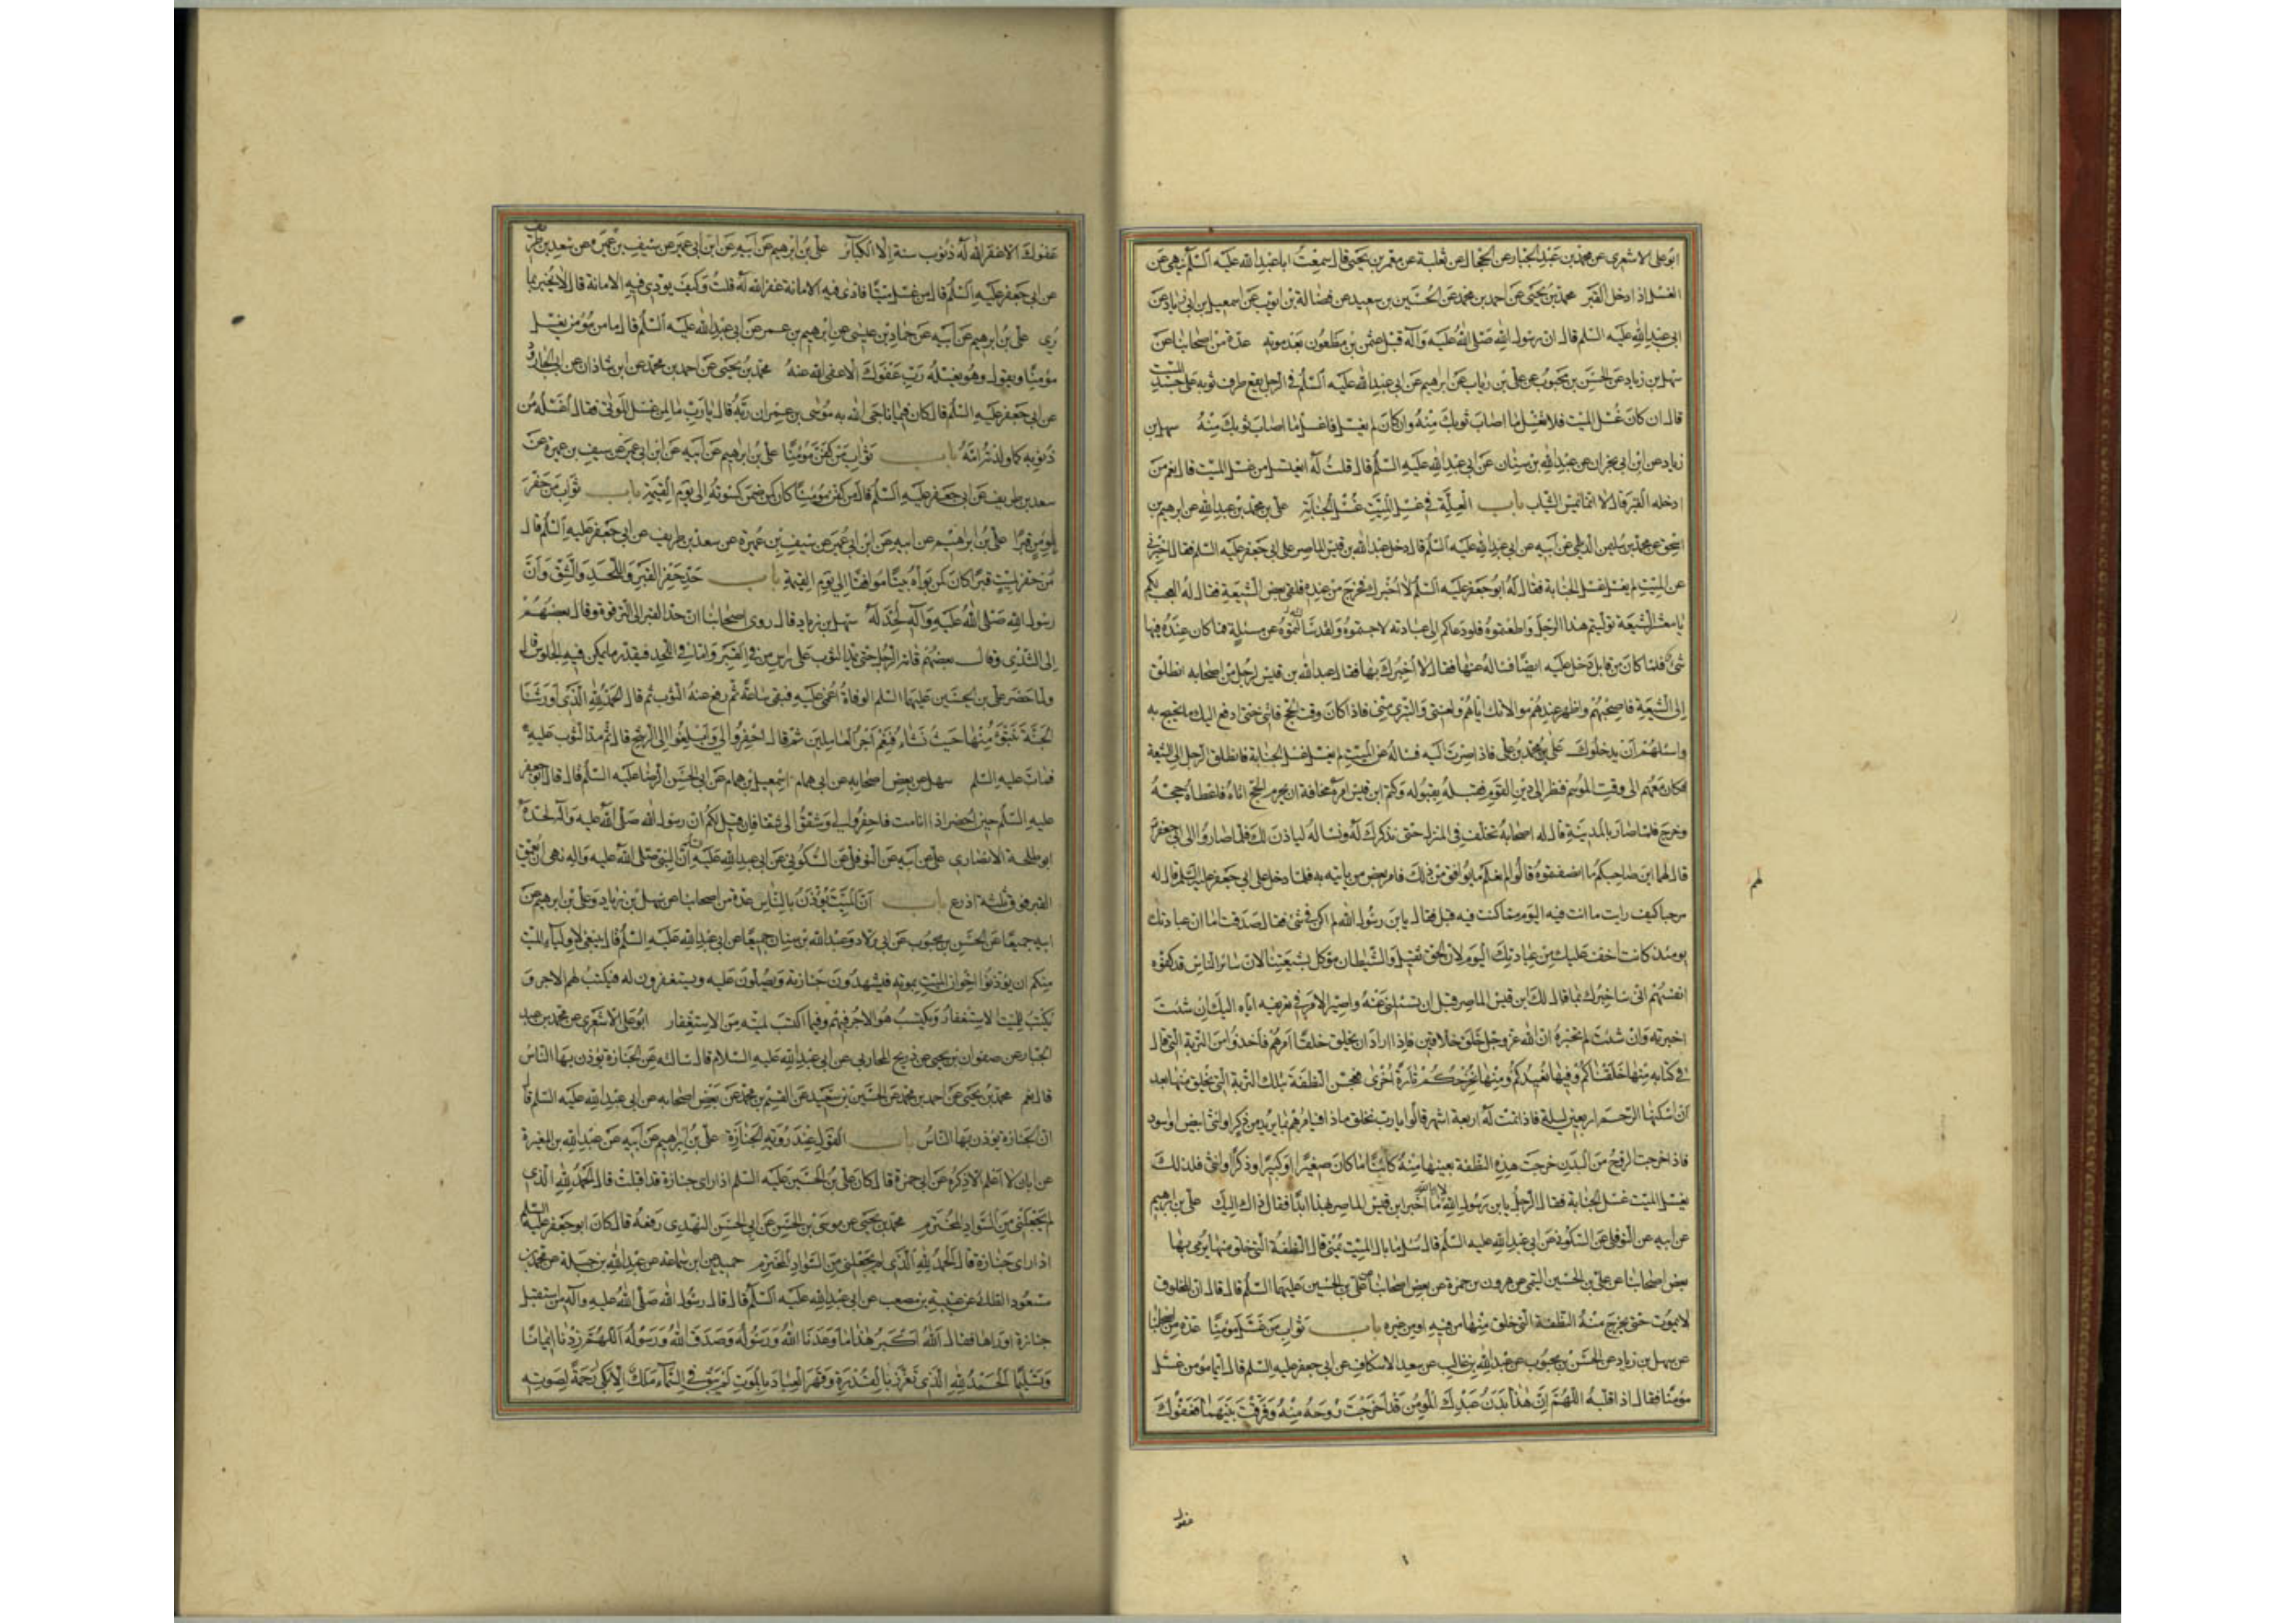 ابو علی الاشعری عن محمد بن عبد الجبار عن الحجال عن ثعلبة عن معمر بن یحیی قال سمعت ابا عبد الله علیه السلم ینهی عن
الغسل اذا دخل القبر محمد بن یحیی عن احمد بن محمد عن الحسین بن سعید عن فضالة بن ایوب عن اسمعیل بن ابی زیاد عن
ابی عبد الله علیه السلم قال ان رسول الله صلی الله علیه وآله قبل عثمن بن مظعون بعد موته عدة من اصحابنا عن
سهل بن زیاد عن الحسن بن محبوب عن علی بن ریاب عن ابراهیم عن ابی عبد الله علیه السلم فی الرجل یقع طرف ثوبه علی جسد المیت
قال ان كان غسل المیت فلا تغسل ما اصاب ثوبك منه وان كان لم یغسل فاغسل ما اصاب ثوبك منه سهل بن
زیاد عن ابن ابی نجران عن عبد الله بن سنان عن ابی عبد الله علیه السلم قال قلت له ایغتسل من غسل المیت قال نعم من
ادخله القبر قال لا انما تمس الثیاب باب العلة فی غسل المیت غسل الجنابة علی بن محمد بن عبد الله عن ابرهیم بن
اسحق عن محمد بن سلیمن الدیلمی عن ابیه عن ابی عبد الله علیه السلم قال دخل عبد الله بن قیس الماصر علی ابی جعفر علیه السلم فقال اخبرنی
عن المیت لم یغسل غسل الجنابة فقال له ابو جعفر علیه السلم لا اخبرك فخرج من عنده فلقی بعض الشیعة فقال له العجب لكم
یا معشر الشیعة تولیتم هذا الرجل واطعتموه فلو دعاكم الی عبادته لاجبتموه ولقد سالته عن مسئلة فما كان عنده فیها
شیء فلما كان من قابل دخل علیه ایضا فساله عنها فقال لا اخبرك بها فقال عبد الله بن قیس لرجل من اصحابه انطلق
الی الشیعة فاصحبهم واظهر عندهم موالاتك ایاهم ولعنتی والتبری منی فاذا كان وقت الحج فاتنی حتی ادفع الیك ما تحج به
واسئلهم ان یدخلوك علی محمد بن علی فاذا صرت الیه فساله عن المیت لم یغسل غسل الجنابة فانطلق الرجل الی الشیعة
فكان معهم الی وقت الموسم فنظر الی دین القوم فقبله بقبوله وكتم ابن قیس امره مخافة ان یحرم الحج اتاه فاعطاه حجة
وخرج فلما صار بالمدینة قال له اصحابه تخلف فی المنزل حتی نذكرك له ونساله لیاذن لك فلما صاروا الی ابی جعفر
قال لهم این صاحبكم ما انصفتموه قالوا لم نعلم ما یوافق من ذلك فامر بعض من یاتیه به فلما دخل علی ابی جعفر علیه السلم قال له
لهم
مرحبا كیف رایت ما انت فیه الیوم مما كنت فیه قبل فقال یابن رسول الله لم اكن فی شیء فقال صدقت اما ان عبادتك
یومئذ كانت اخف علیك من عبادتك الیوم لان الحق ثقیل والشیطان موكل بشیعتنا لان سائر الناس قد كفوه
انفسهم انی ساخبرك بما قال لك ابن قیس الماصر قبل ان تسئلنی عنه واصیر الامر فی تعریفه ایاه الیك ان شئت
اخبرته وان شئت لم تخبره ان الله عز وجل خلق خلاقین فاذا اراد ان یخلق خلقا امرهم فاخذوا من التربة التی قال
فی كتابه منها خلقناكم وفیها نعیدكم ومنها نخرجكم تارة اخری فعجن النطفة بتلك التربة التی یخلق منها بعد
ان اسكنها الرحم اربعین لیلة فاذا تمت له اربعة اشهر قالوا یا رب نخلق ماذا فیامرهم بما یرید من ذكر او انثی ابیض او اسود
فاذا خرجت الروح من البدن خرجت هذه النطفة بعینها منه كائنا ما كان صغیرا او كبیرا وذكرا او انثی فلذلك
یغسل المیت غسل الجنابة فقال الرجل یابن رسول الله لا والله ما اخبر ابن قیس الماصر بهذا ابدا فقال ذاك الیك علی بن ابرهیم
عن ابیه عن النوفلی عن السكونی عن ابی عبد الله علیه السلم قال سئل ما بال المیت یمنی قال النطفة التی خلق منها یرمی بها
بعض اصحابنا عن علی بن الحسین المیثمی عن هرون بن حمزة عن بعض اصحابنا عن علی بن الحسین علیهما السلم قال قال ان المخلوق
لا یموت حتی یخرج منه النطفة التی خلق منها من فیه او من غیره باب ثواب من غسل مومنا عدة من اصحابنا
عن سهل بن زیاد عن الحسن بن محبوب عن عبد الله بن غالب عن سعد الاسكاف عن ابی جعفر علیه السلم قال ایما مومن غسل
مومنا فقال اذا قلبه اللهم ان هذا بدن عبدك المومن قد اخرجت روحه منه وفرقت بینهما فعفوك
عفوك
عفوك الا غفر الله له ذنوب سنة الا الكبائر علی بن ابرهیم عن ابیه عن ابن ابی عمیر عن سیف بن عمیره عن سعد بن طریف
عن ابی جعفر علیه السلم قال من غسل میتا فادی فیه الامانة غفر الله له قلت وكیف یودی فیه الامانة قال لا یخبر بما
یری علی بن ابرهیم عن ابیه عن حماد بن عیسی عن ابرهیم بن عمر عن ابی عبد الله علیه السلم قال ما من مومن یغسل
مومنا ویقول وهو یغسله رب عفوك الا عفی الله عنه محمد بن یحیی عن احمد بن محمد عن ابن شاذان عن ابی الجارود
عن ابی جعفر علیه السلم قال كان فیما ناجی الله به موسی بن عمران ربه قال یا رب ما لمن غسل الموتی فقال اغسله من
ذنوبه كما ولدته امه باب ثواب من كفن مومنا علی بن ابرهیم عن ابیه عن ابن ابی عمیر عن سیف بن عمیرة عن
سعد بن طریف عن ابی جعفر علیه السلم قال من كفن مومنا كان كمن ضمن كسوته الی یوم القیمة باب ثواب من حفر
لمومن قبرا علی بن ابرهیم عن ابیه عن ابن ابی عمیر عن سیف بن عمیرة عن سعد بن طریف عن ابی جعفر علیه السلم قال
من حفر لمیت قبرا كان كمن بواه بیتا موافقا الی یوم القیمة باب حد حفر القبر واللحد والشق وان
رسول الله صلی الله علیه وآله لحد له سهل بن زیاد قال روی اصحابنا ان حد القبر الی الترقوه وقال بعضهم
الی الثدی وقال بعضهم قامة الرجل حتی یمد الثوب علی راس من فی القبر واما اللحد فبقدر ما یمكن فیه الجلوس قال
ولما حضر علی بن الحسین علیهما السلم الوفاة اغمی علیه فبقی ساعة ثم رفع عنه الثوب ثم قال الحمد لله الذی اورثنا
الجنة نتبوء منها حیث نشاء فنعم اجر العاملین ثم قال احفروا لی وابلغوا الی الرشح قال ثم مد الثوب علیه
فمات علیه السلم سهل عن بعض اصحابه عن ابی همام اسمعیل بن همام عن ابی الحسن الرضا علیه السلم قال قال ابو جعفر
علیه السلم حین احضر اذا انا مت فاحفروا لی وشقوا لی شقا فان قیل لكم ان رسول الله صلی الله علیه وآله لحد له
ابو طلحة الانصاری علی عن ابیه عن النوفلی عن السكونی عن ابی عبد الله علیه ان النبی صلی الله علیه واله نهی ان یعمق
القبر فوق ثلثة اذرع باب ان المیت یؤذن به الناس عدة من اصحابنا عن سهل بن زیاد وعلی بن ابرهیم عن
ابیه جمیعا عن الحسن بن محبوب عن ابی ولاد وعبد الله بن سنان جمیعا عن ابی عبد الله علیه السلم قال ینبغی لاولیاء المیت
منكم ان یؤذنوا اخوان المیت بموته فیشهدون جنازته ویصلون علیه ویستغفرون له فیكتب لهم الاجر و
یكتب للمیت الاستغفار ویكتسب هو الاجر فیهم وفیما اكتسب لمیته من الاستغفار ابو علی الاشعری عن محمد بن عبد
الجبار عن صفوان بن یحیی عن ذریح المحاربی عن ابی عبد الله علیه السلام قال سالته عن الجنازة یؤذن بها الناس
قال نعم محمد بن یحیی عن احمد بن محمد عن الحسین بن سعید عن القسم بن محمد عن بعض اصحابه عن ابی عبد الله علیه السلم قال
ان الجنازة یؤذن بها الناس باب القول عند رویة الجنازة علی بن ابرهیم عن ابیه عن عبد الله بن المغیرة
عن ابان لا اعلمه الا ذكره عن ابی حمزة قال كان علی بن الحسین علیه السلم اذا رای جنازة قد اقبلت قال الحمد لله الذی
لم یجعلنی من السواد المخترم محمد بن یحیی عن موسی بن الحسن عن ابی الحسن النهدی رفعه قال كان ابو جعفر علیه السلم
اذا رای جنازة قال الحمد لله الذی لم یجعلنی من السواد المخترم حمید عن ابن سماعة عن عبد الله بن جبلة عن محمد بن
مسعود الطائی عن عنبسة بن مصعب عن ابی عبد الله علیه السلم قال قال رسول الله صلی الله علیه وآله من استقبل
جنازة او راها فقال الله اكبر هذا ما وعدنا الله ورسوله وصدق الله ورسوله اللهم زدنا ایمانا
وتسلیما الحمد لله الذی تعزز بالقدرة وقهر العباد بالموت لم یبق فی السماء ملك الا بكی رحمة لصوته